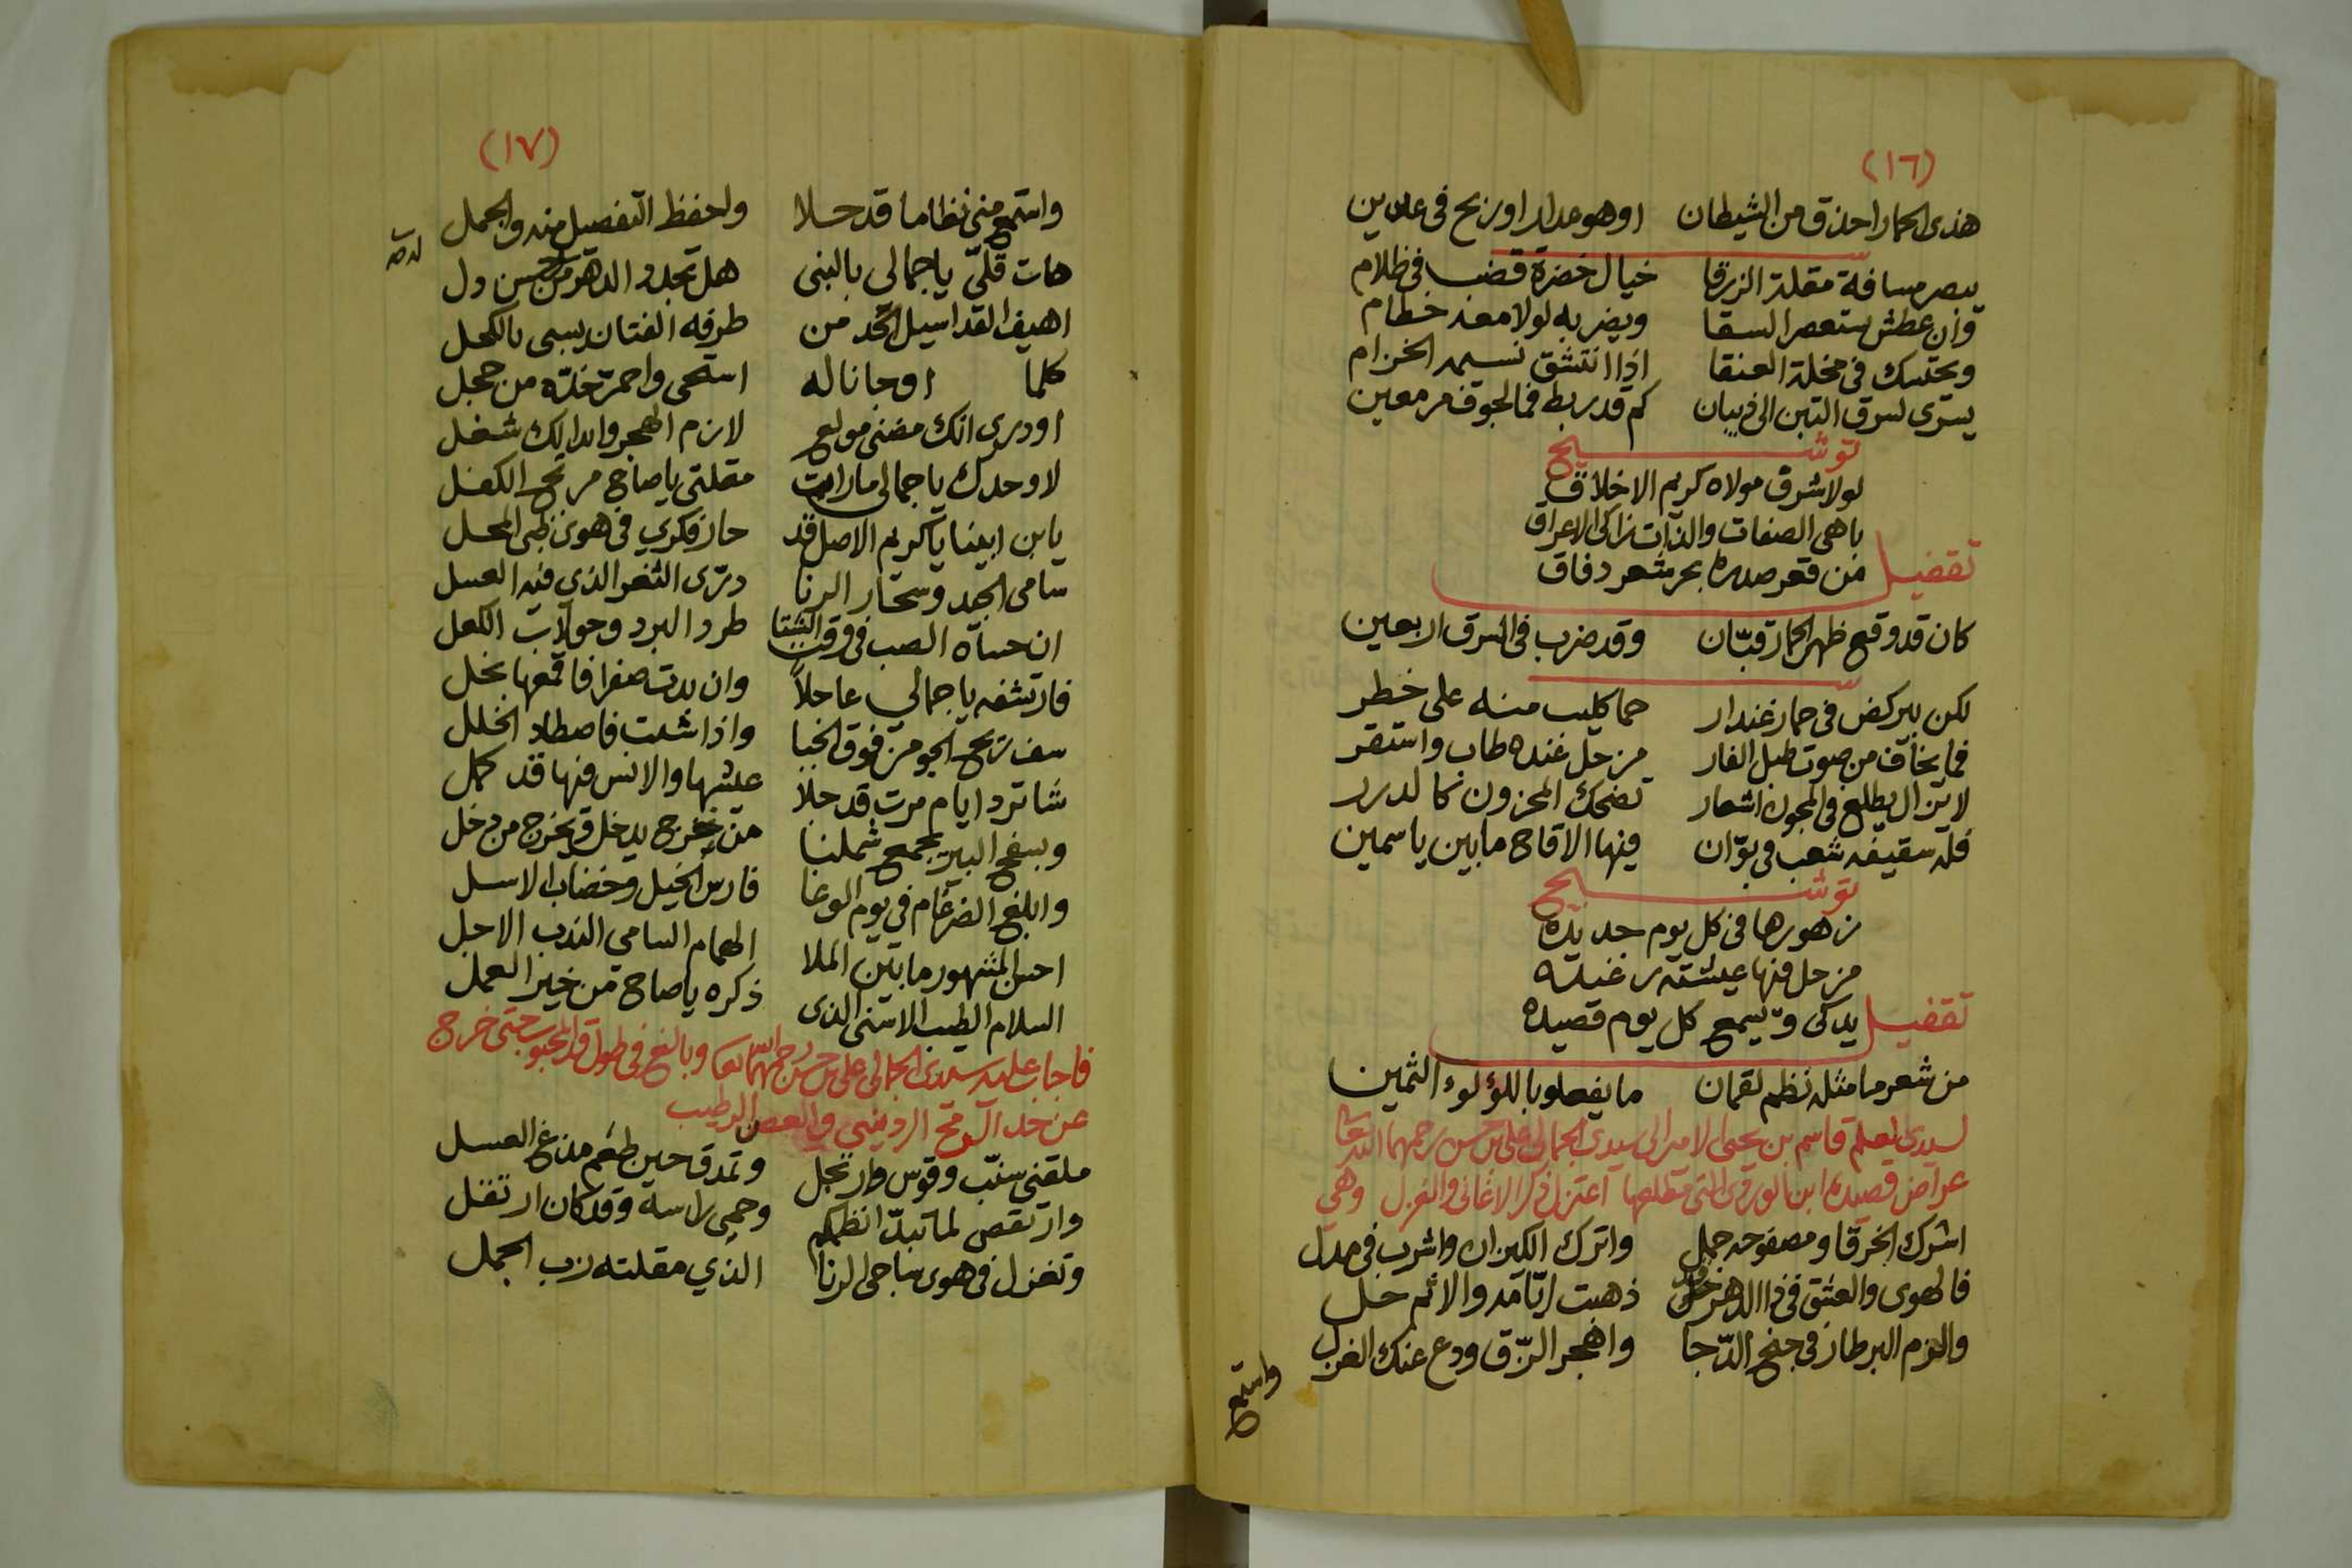 (١٦)
هذى الحمار احذق من الشيطان اوهو مدار اوريح فى
يبصر مسافة مقلة الزرقا خيال خضرة قضب فى ظلام
وان عطش ستعصر السقا ويضر به لولا معه خطام
ويحتسك فى مخلة العنقا اذا انتشق نسيمه الخزام
يسرى لسرق التبن الى ذيبان كم قد ربط فى الجوف مر معين
توشيح
لولا شرق مولاه كريم الاخلاق
باهى الصفات والذات زاكى الاعراق
تقفيل من قعر صدره بحر شعر دفاق
كان قد وقع ظهر الحمار قبّان وقد ضرب فى السرق اربعين
لكن بيركض فى حمار غندار حما كليب منه على خطر
فما يخاف من صوت طبل الفار من حل عنده طاب واستقر
لا يزال يطلع فى المجون اشعار تضحك المحزون كالدرر
فله سقيفه شعب فى بوّان فيها الاقاح ما بين ياسمين
توشيح
زهورها فى كل يوم جديده
من حل فيها عيشته رغيده
تقفيل يدكى ويسمع كل يوم قصيده
من شعر ما مثله نظم لقمان ما يفعلوبا للؤلوء الثمين
لسيدى العلم قاسم بن يحيى الامير الى سيدى الجمالى على بن حسن رحمهما الله تعالى
عراض قصيدة ابن الوردى التى مطلعها اعتزل ذكر الاغانى والغزل وهى
اشرك الخرقا ومصفوحه جمل واترك الكيزان واشرب فى مدل
فالهوى والعشق فى ذا الدهر قد خل ذهبت ايّامه والاثم حل
والزم البرطاز فى جنح الدّجا واهجر الزّق ودع عنك الغزل
واستمع
(١٧)
واستمع منى نظاما قد حلا واحفظ التفصيل منه والجمل
هات قلّي ياجمالى بالنبى هل تجد والدهر من حسن دل
اهيف القد اسيل الخد من طرفه الفتان يسبى بالكحل
كلما اوجاناله استحى واحمر خدّه من خجل
اودرى انك مضنى مولع لازم الهجر وابدالك شغل
لا وحدك ياجمالى مارات مقلتى ياصاح مرتج الكفل
يابن ابينا ياكريم الاصل قد حاز فكري فى هوى ظبى المحل
سامى الجيد وسحار الرنا درّى الثغر الذي فيه العسل
ان حساه الصب فى وقت الشتا طرد البرد وحولات الكعل
فارتشفه ياجمالي عاجلاً وان بدت صفرا فاقمعها بخل
سف تريح الجو من فوق الخبا واذا شلت فاصطاد الخلل
شاترد ايام مرت قد حلا عيشها والانس فيها قد كمل
وبسفح البير يجمع شملنا من خرج يدخل ويخرج من دخل
وابلغ الضرغام فى يوم الوغا فارس الخيل وخضاب الاسل
احسن المشهور مابين الملا الهمام السامى الندب الاجل
السلام الطيب الاسنى الذى ذكره ياصاح من خير العمل
فاجاب عليه سيدى الجمالى على بن حسن رحمه الله تعالى وبالغ فى طول قد المحبوب حتى خرج
عن حد الرمح الردينى والغصن الرطيب
ملقنى سنّب وقوس وارتجل وتمدق حين طعم مدغ العسل
وارتقص لما تبدّا نظمكم وحمى راسه وقد كان ارتقل
وتغزل فى هوى ساجى الرنا الذي مقلته زب الجمل